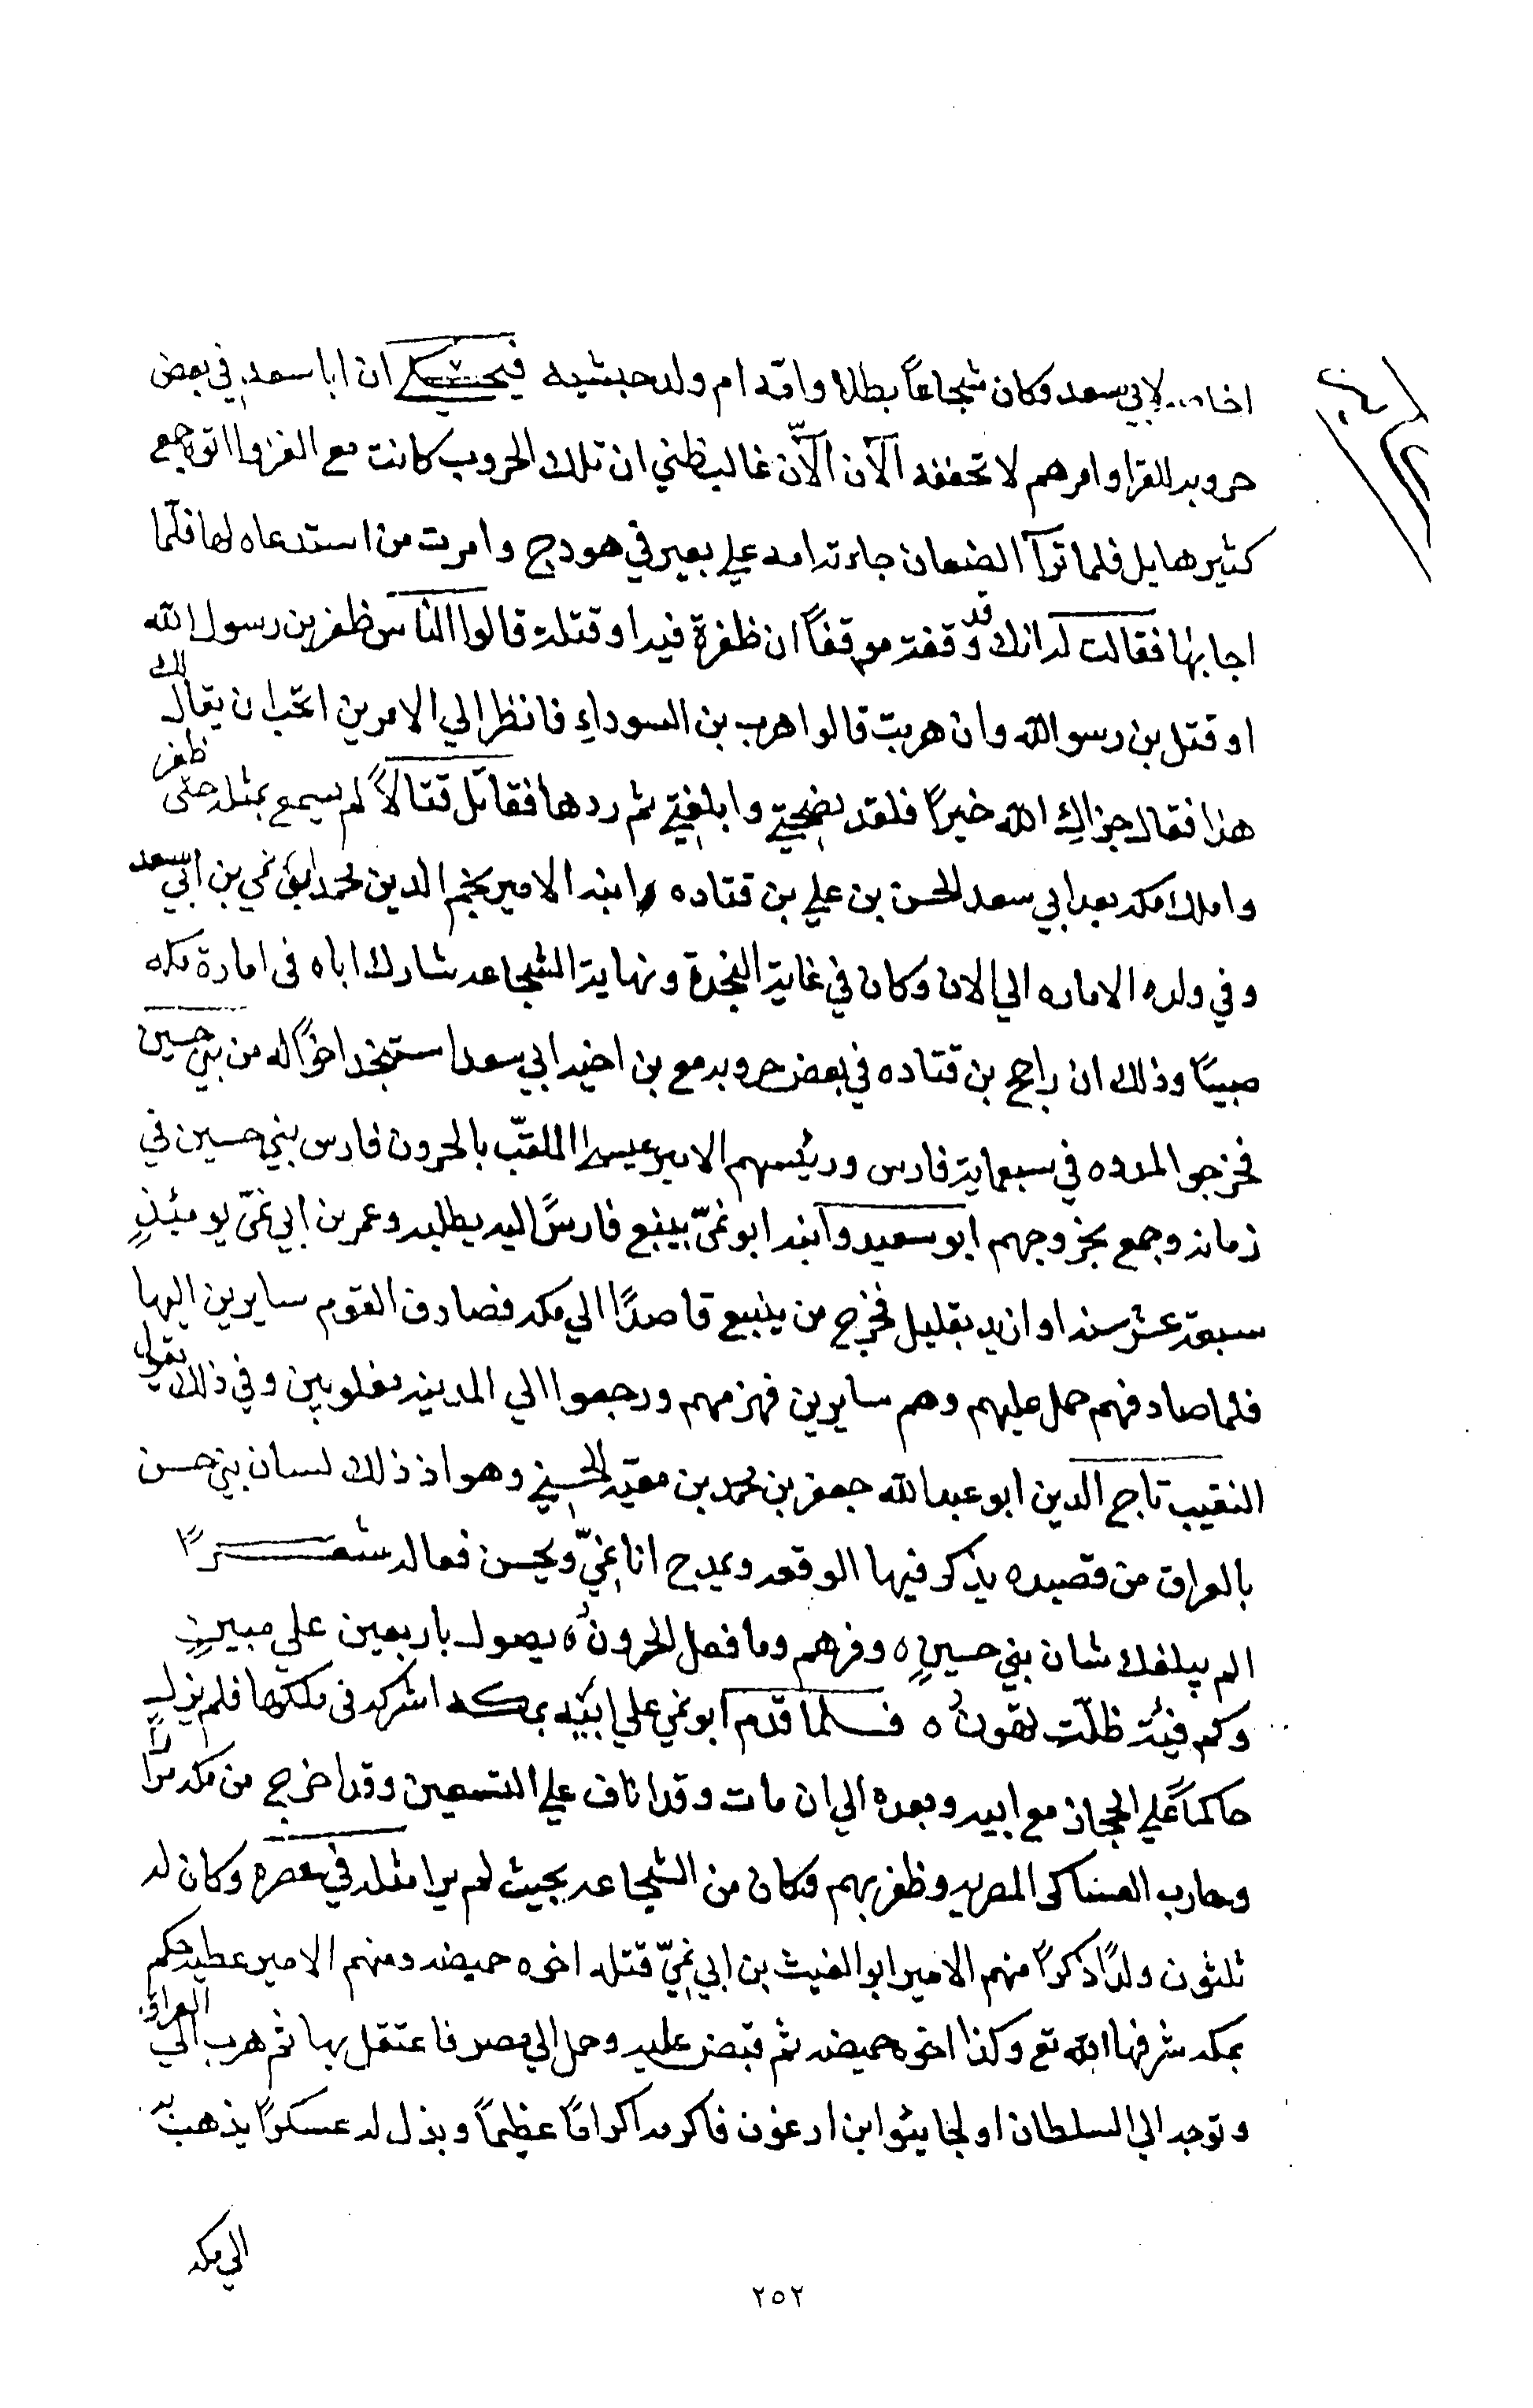 اخاه لابي سعد وكان شجاعاً بطلا وامّه ام ولد حبشيه فيحكى ان ابا سعد في بعض
حروبه للغزا وامرهم لا تحففه الآن الآّن غالب ظني ان تلك الحروب كانت مع الغزو اتو جمع
كثير هايل فلما ترآ الضمعان جاءته امه علي بعير في هودج وامرت من استدعاه لها فلمّا
اجابها فقالت له انك قد وقفت موقفاً ان ظفرة فيه او قتلت قالوا الناس ظفر بن رسول الله
او قتل بن رسوالله وان هربت قالوا هرب بن السوداءِ فانظر الي الامرين اتحّب ان يقال لك
هذا فقال جزاكِ الله خيراً فلقد نصحتي وابلغتي ثم ردها فقاتل قتالاً لم يسمع بمثله حتى ظفر
واملك مكه بعد ابي سعد الحسن بن علي بن قتاده وابنه الامير نجم الدين محمد ابو نمي بن ابي سعد
وفي ولده الاماره الي الان وكان في غاية النجدة ونهاية الشجاعه شارك اباه في امارة مكه
صبيّا وذلك ان راجح بن قتاده في بعض حروبه مع بن اخيه ابي سعد استنجد اخوًاله من بني حسين
فخرجو المدده في سبعماية فارس ورئيسهم الامير عيسى الملقّب بالحرون فارس بني حسين في
زمانه وجمع بخروجهم ابو سعيد وابنه ابو نميّ بينبع فارسًا اليه يطلبه وعمر بن ابي نميّ يوميئذٍ
سبعة عشر سنه او ازيد بقليل فخرج من ينبيع قاصدًا الي مكه فصادف القوم سايرين اليها
فلما صادفهم حمل عليهم وهم سايرين فهزمهم ورجعوا الي المدينه مغلوبين وفي ذلك يقول
النقيب تاج الدين ابو عبد الله جعفر بن محمد بن معيّه الحسيني وهو اذ ذلك لسان بني حسن
بالعراق من قصيده يذكر فيها الوقعه ويمدح ابا نميّ ويحسن فعاله شعرًا
الم يبلغك شان بني حسينٍ ه وفرهم وما فعل الحرونُ ه يصول باربعين علي مبيرٍ
وكم فئة ظلّت تهونُ ه فلما قدم ابو نمي علي ابيّه بمكه اشركه في ملكها فلم يزل
حاكماً علي الحجاز مع ابيه وبعده الي ان مات وقد اناف علي التسعين وقد اخرج من مكه مراًرا
وحارب العساكر المصريه وظفر بهم وكان من الشجاعه بحيث لم يرا مثله في عصره وكان له
ثلثون ولدًا ذكرًا منهم الامير ابو الغيث بن ابي نميّ قتله اخوه حميضه ومنهم الامير عطيه حكم
بمكه شرفها الله تع وكذا اخوه حميضه ثم قبض عليه وحمل الي مصر فاعتقل بها ثم هرب الي العراق
وتوجه الي السلطان اولجايتو ابن ارغون فاكرمه اكرامًا عظيماً وبذل له عسكرًا يذهب به
الي مكه
٢٥٢